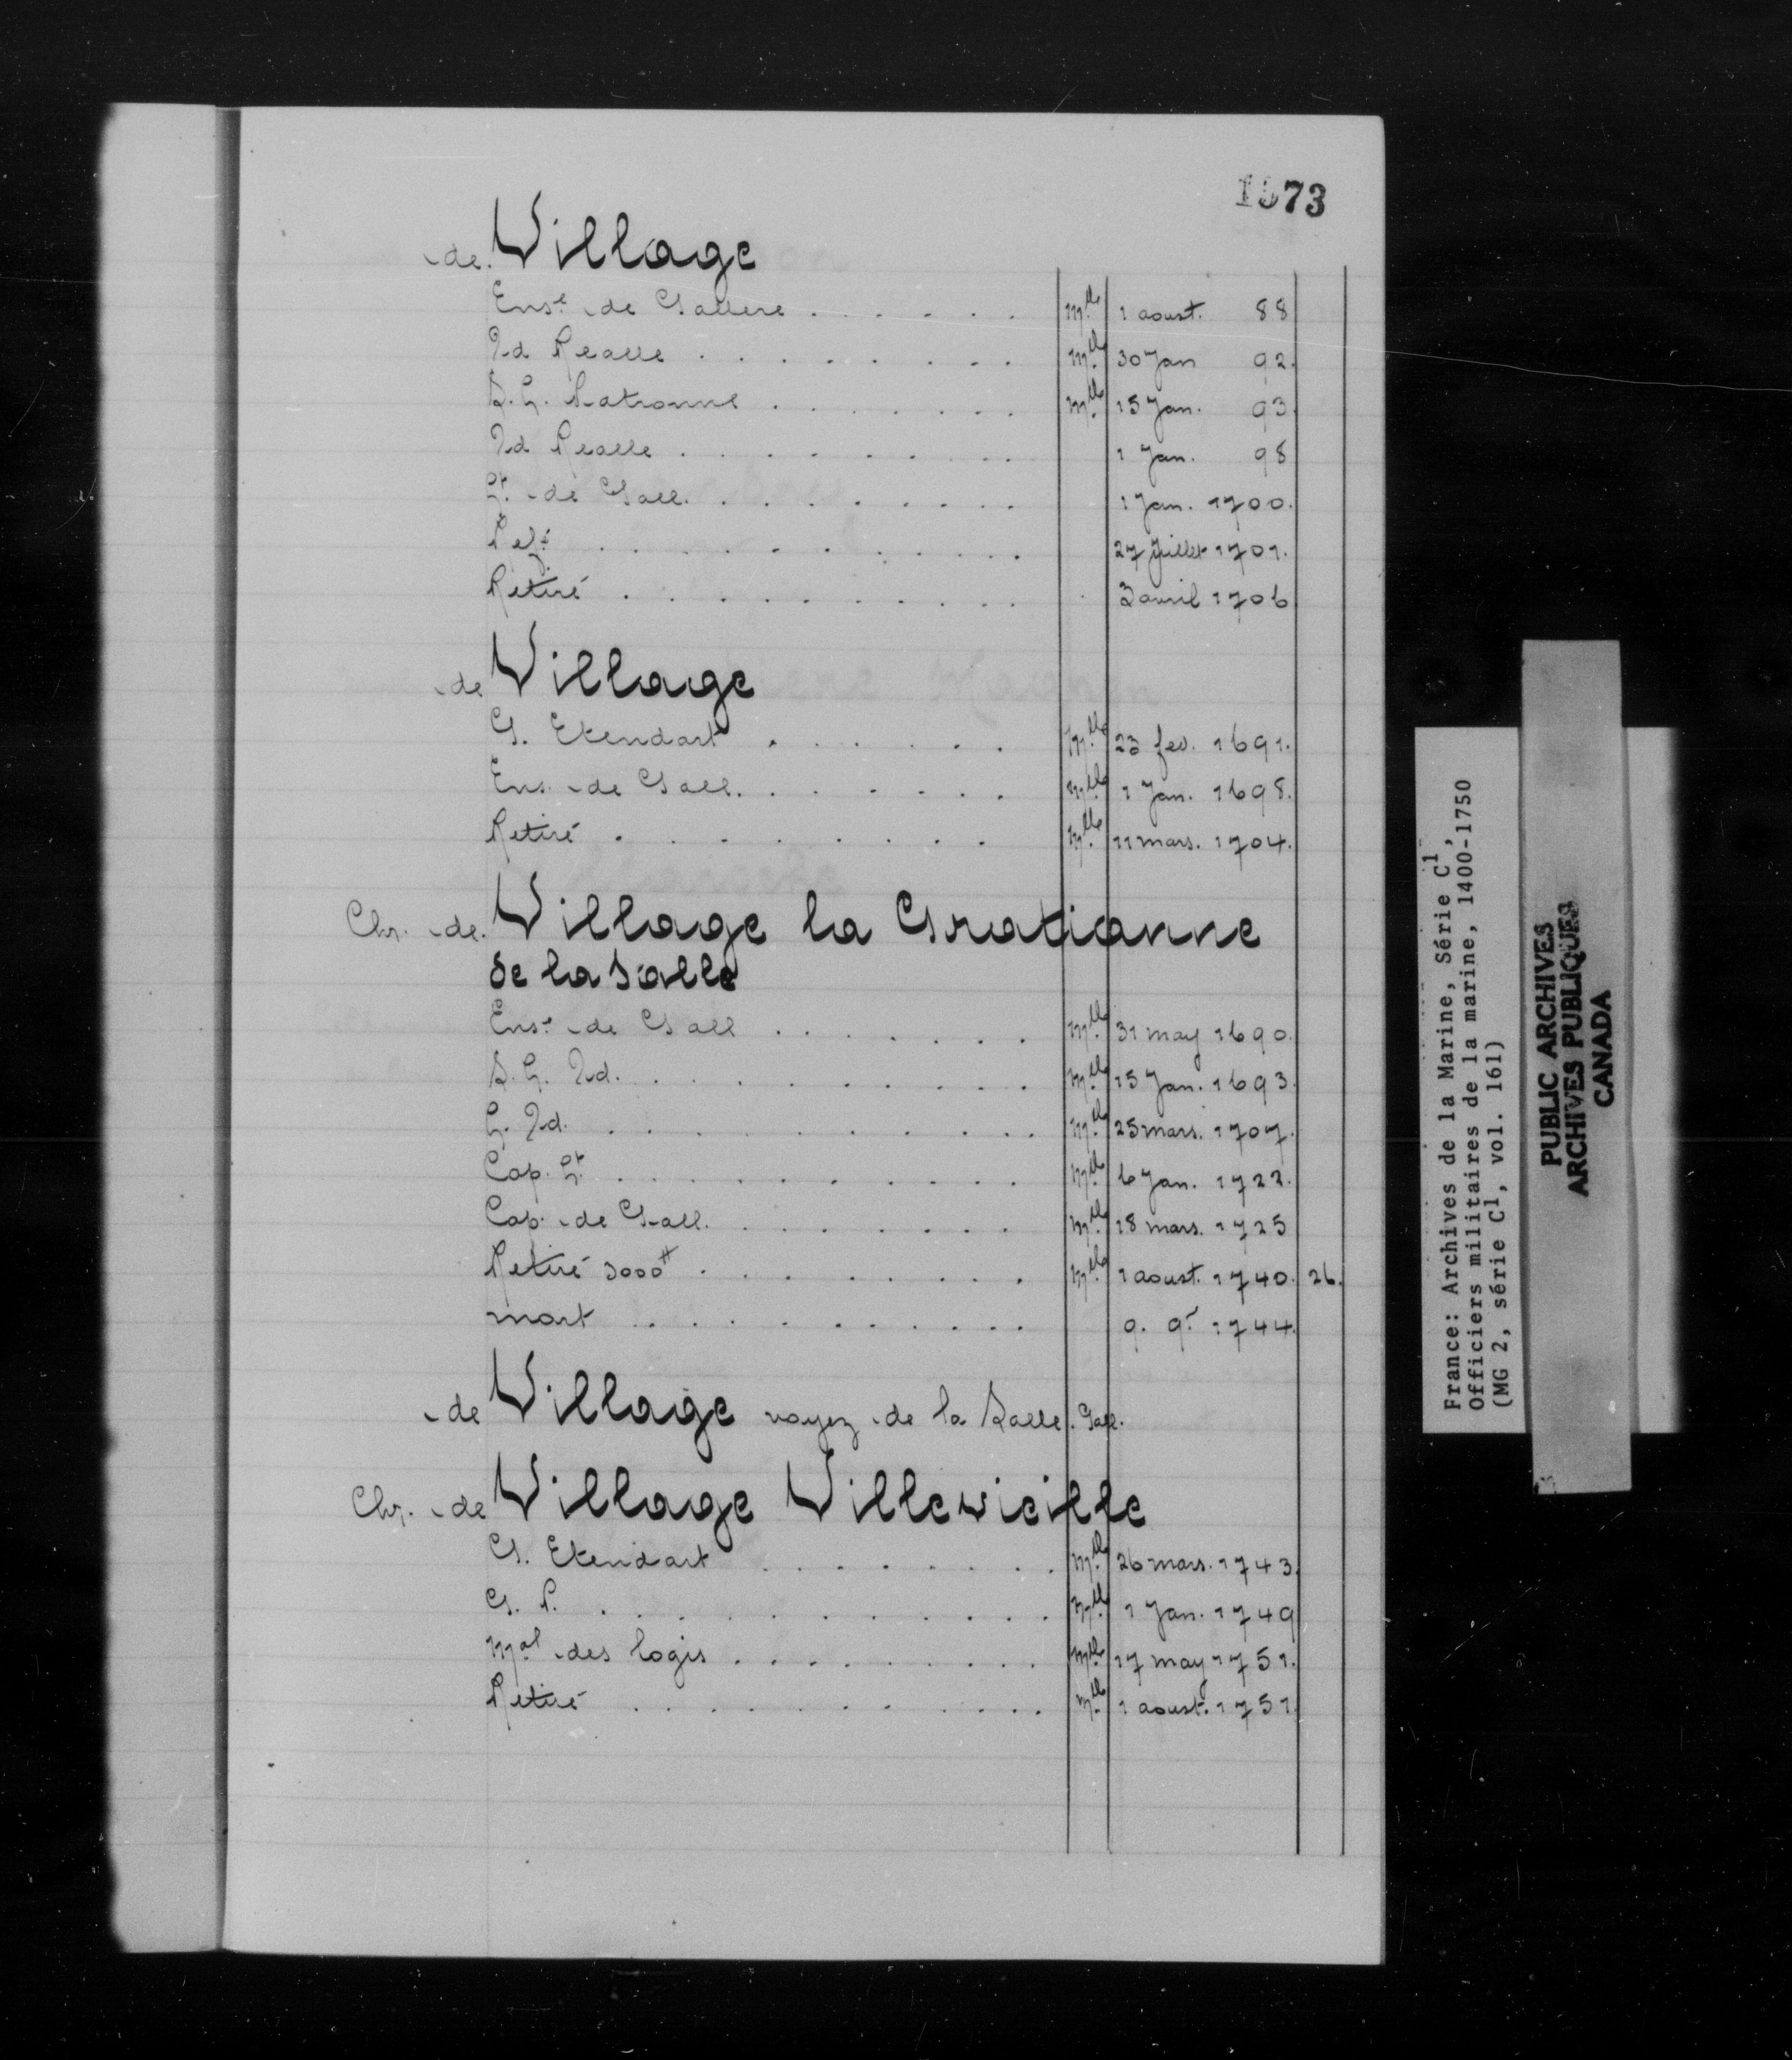 1573
de Village
Ens.e de Gallere . . . . . . Mlle 1 aoust. 88
Id Realle . . . . . . . . . Mlle 30 Jan 92.
S. L. Patronne . . . . . . . Mlle 15 Jan. 93
Id Realle . . . . . . . . . 1 Jan. 98
Lt. de Gall. . . . . . . . . 1 Jan. 1700.
27 Juillet 1701.
Retiré . . . . . . . . . . . 3 avril 1706
de Village
G. Etendart . . . . . . . Mlle 23 fev. 1691.
Ens. de Gall. . . . . . . Mlle 1 Jan. 1698.
Retiré . . . . . . . . Mlle 11 mars. 1704.
Chr. de Village la Gratianne
de la Salle
Ens.e de Gall . . . . . . . Mlle 31 may 1690.
S. L. Id. . . . . . . . . . . Mlle 15 Jan. 1693.
L. Id. . . . . . . . . . . . Mlle 25 mars. 1707.
Cap. Lt. . . . . . . . . . . . Mlle 6 Jan. 1722.
Cap. de Gall. . . . . . . . . Mlle 18 mars. 1725
Retiré 3000# . . . . . . . . . Mlle 1 aoust. 1740. 26.
mort . . . . . . . . . . . 9. 9.r 1744.
de Village voyez de la Salle. Gall.
Chr. de Village Villevieille
G. Etendart . . . . . . . . Mlle 26 mars. 1743.
G. P. . . . . . . . . . . . . Mlle 1 Jan. 1749
Mal des logis . . . . . . . . . Mlle 17 may 1751.
Retiré . . . . . . . . . . . Mlle 1 aoust. 1751
France: Archives de la Marine, Série C1,
Officiers militaires de la marine, 1400-1750
(MG 2, série C1, vol. 161)
PUBLIC ARCHIVES
ARCHIVES PUBLIQUES
CANADA